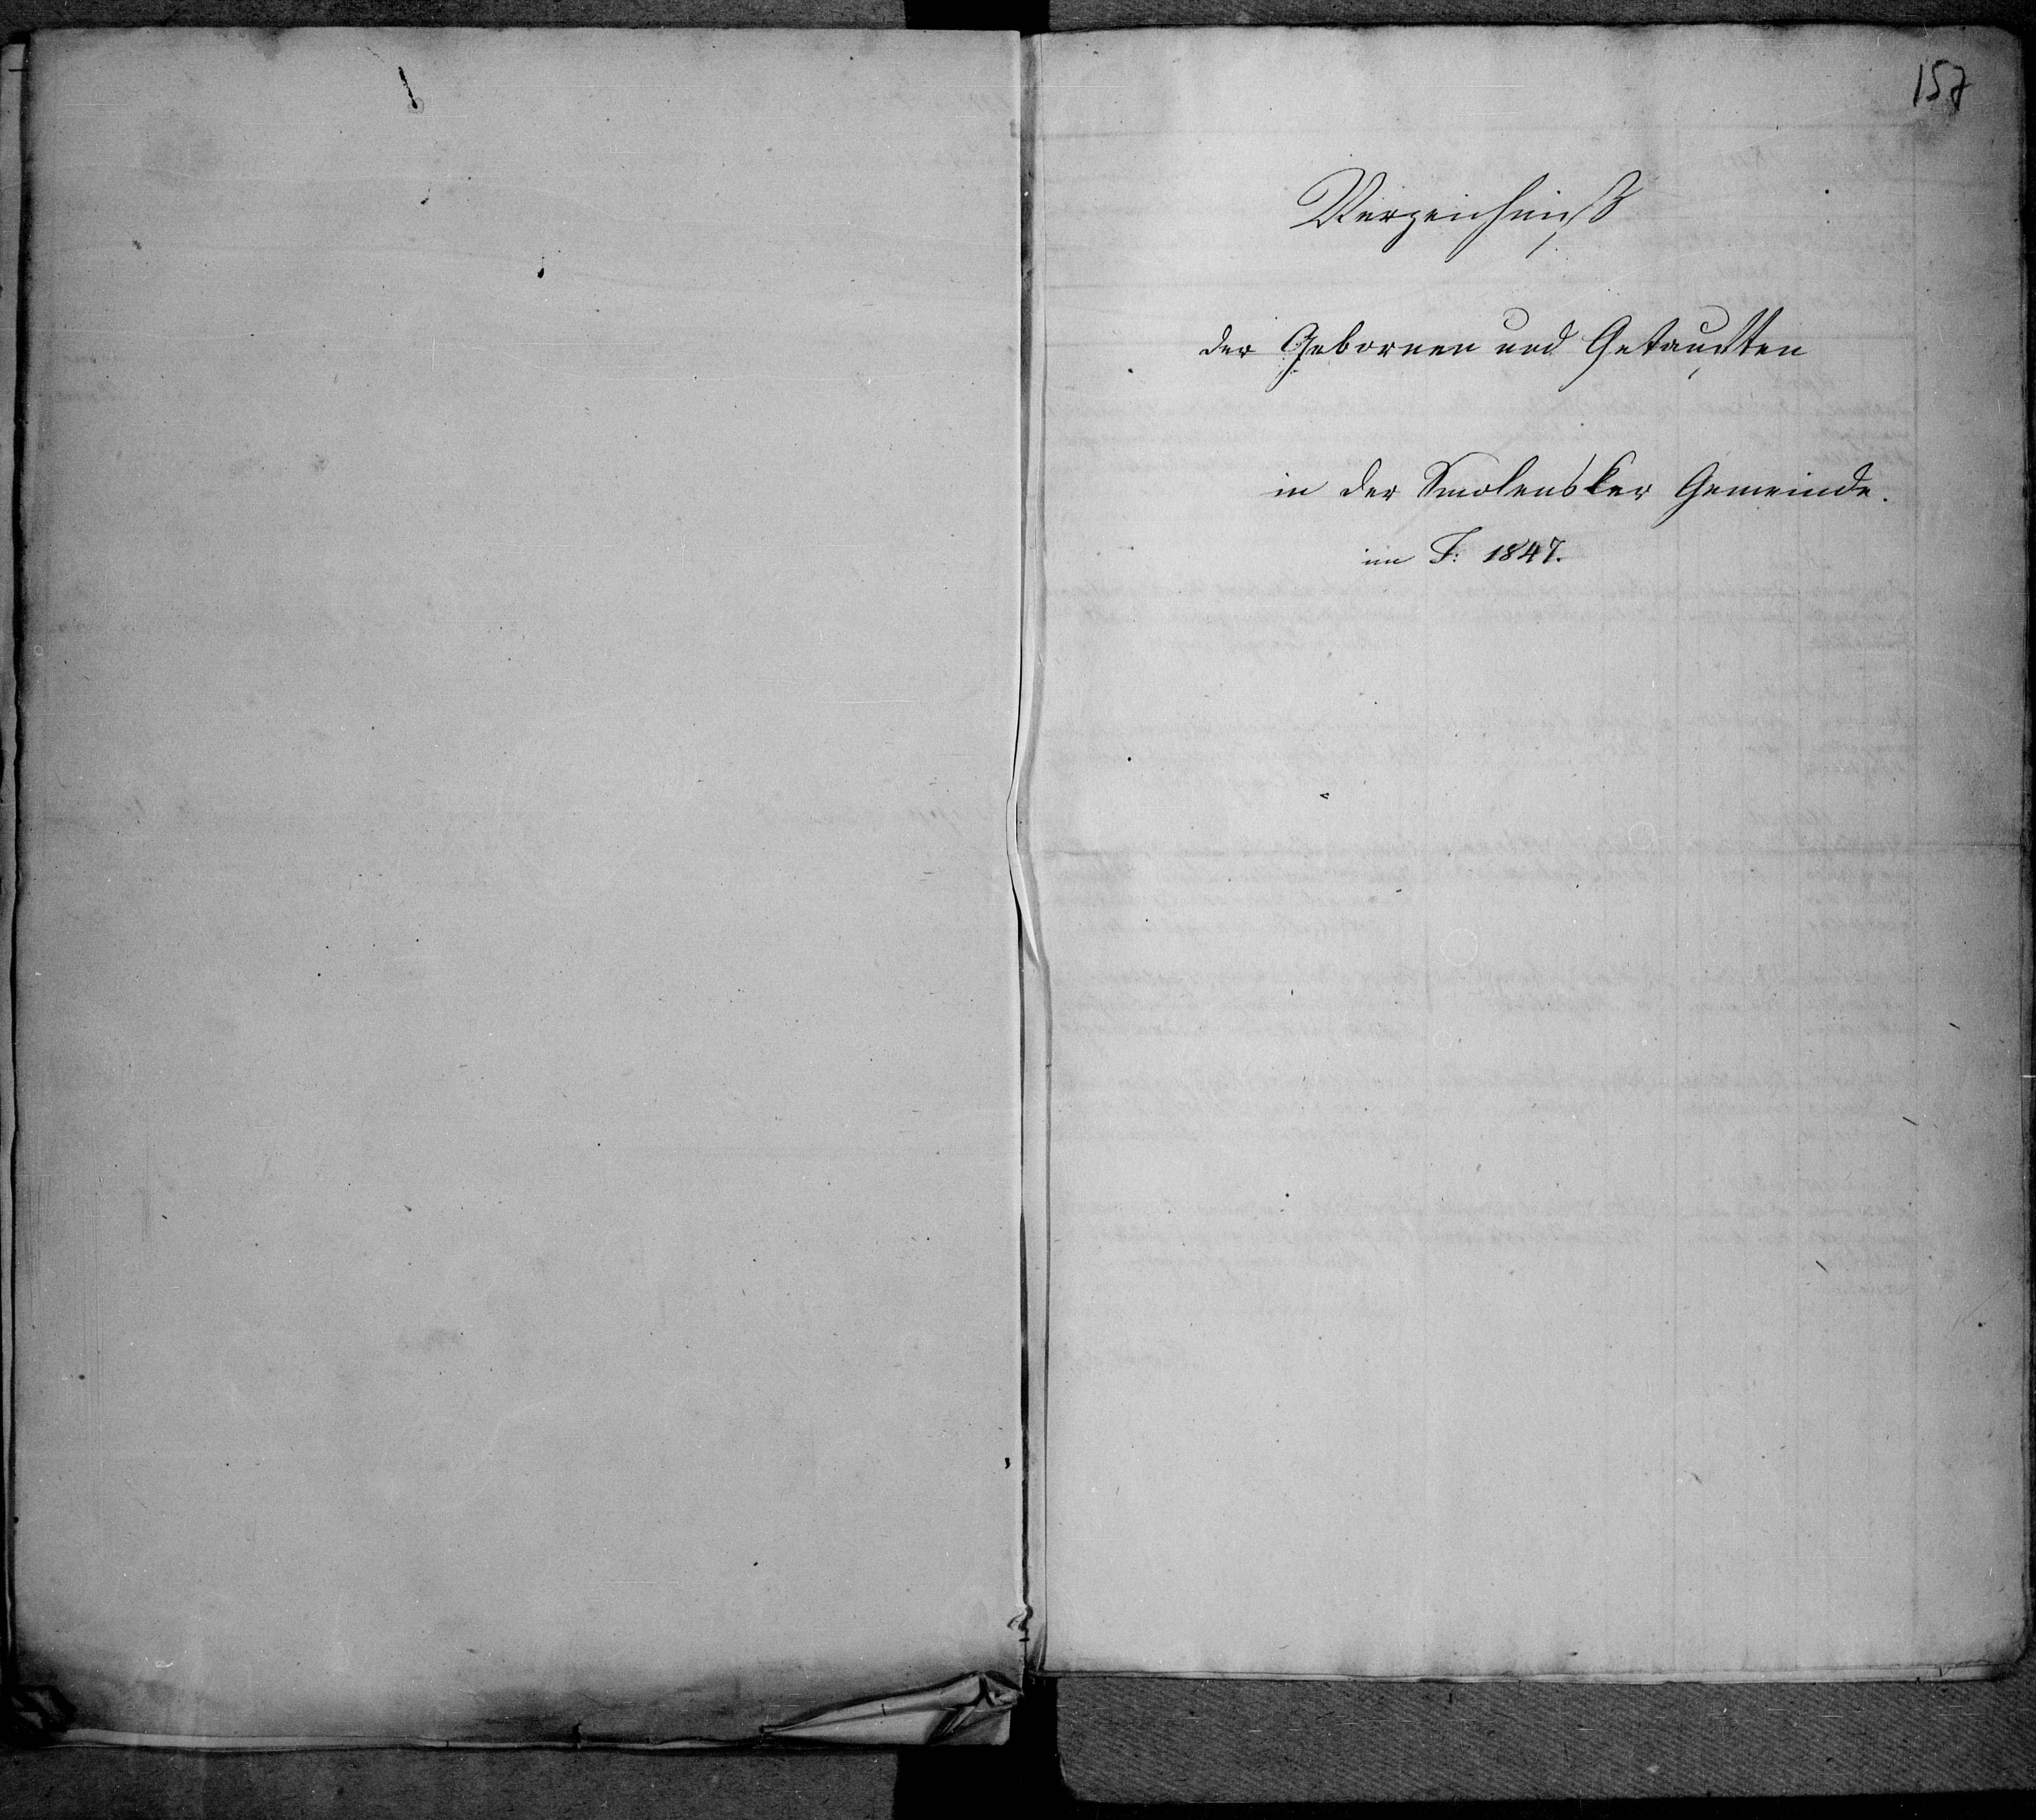 157
Verzeichniß
der Gebornen und Getauften
in der Smolensker Gemeinde.
im J: 1847.